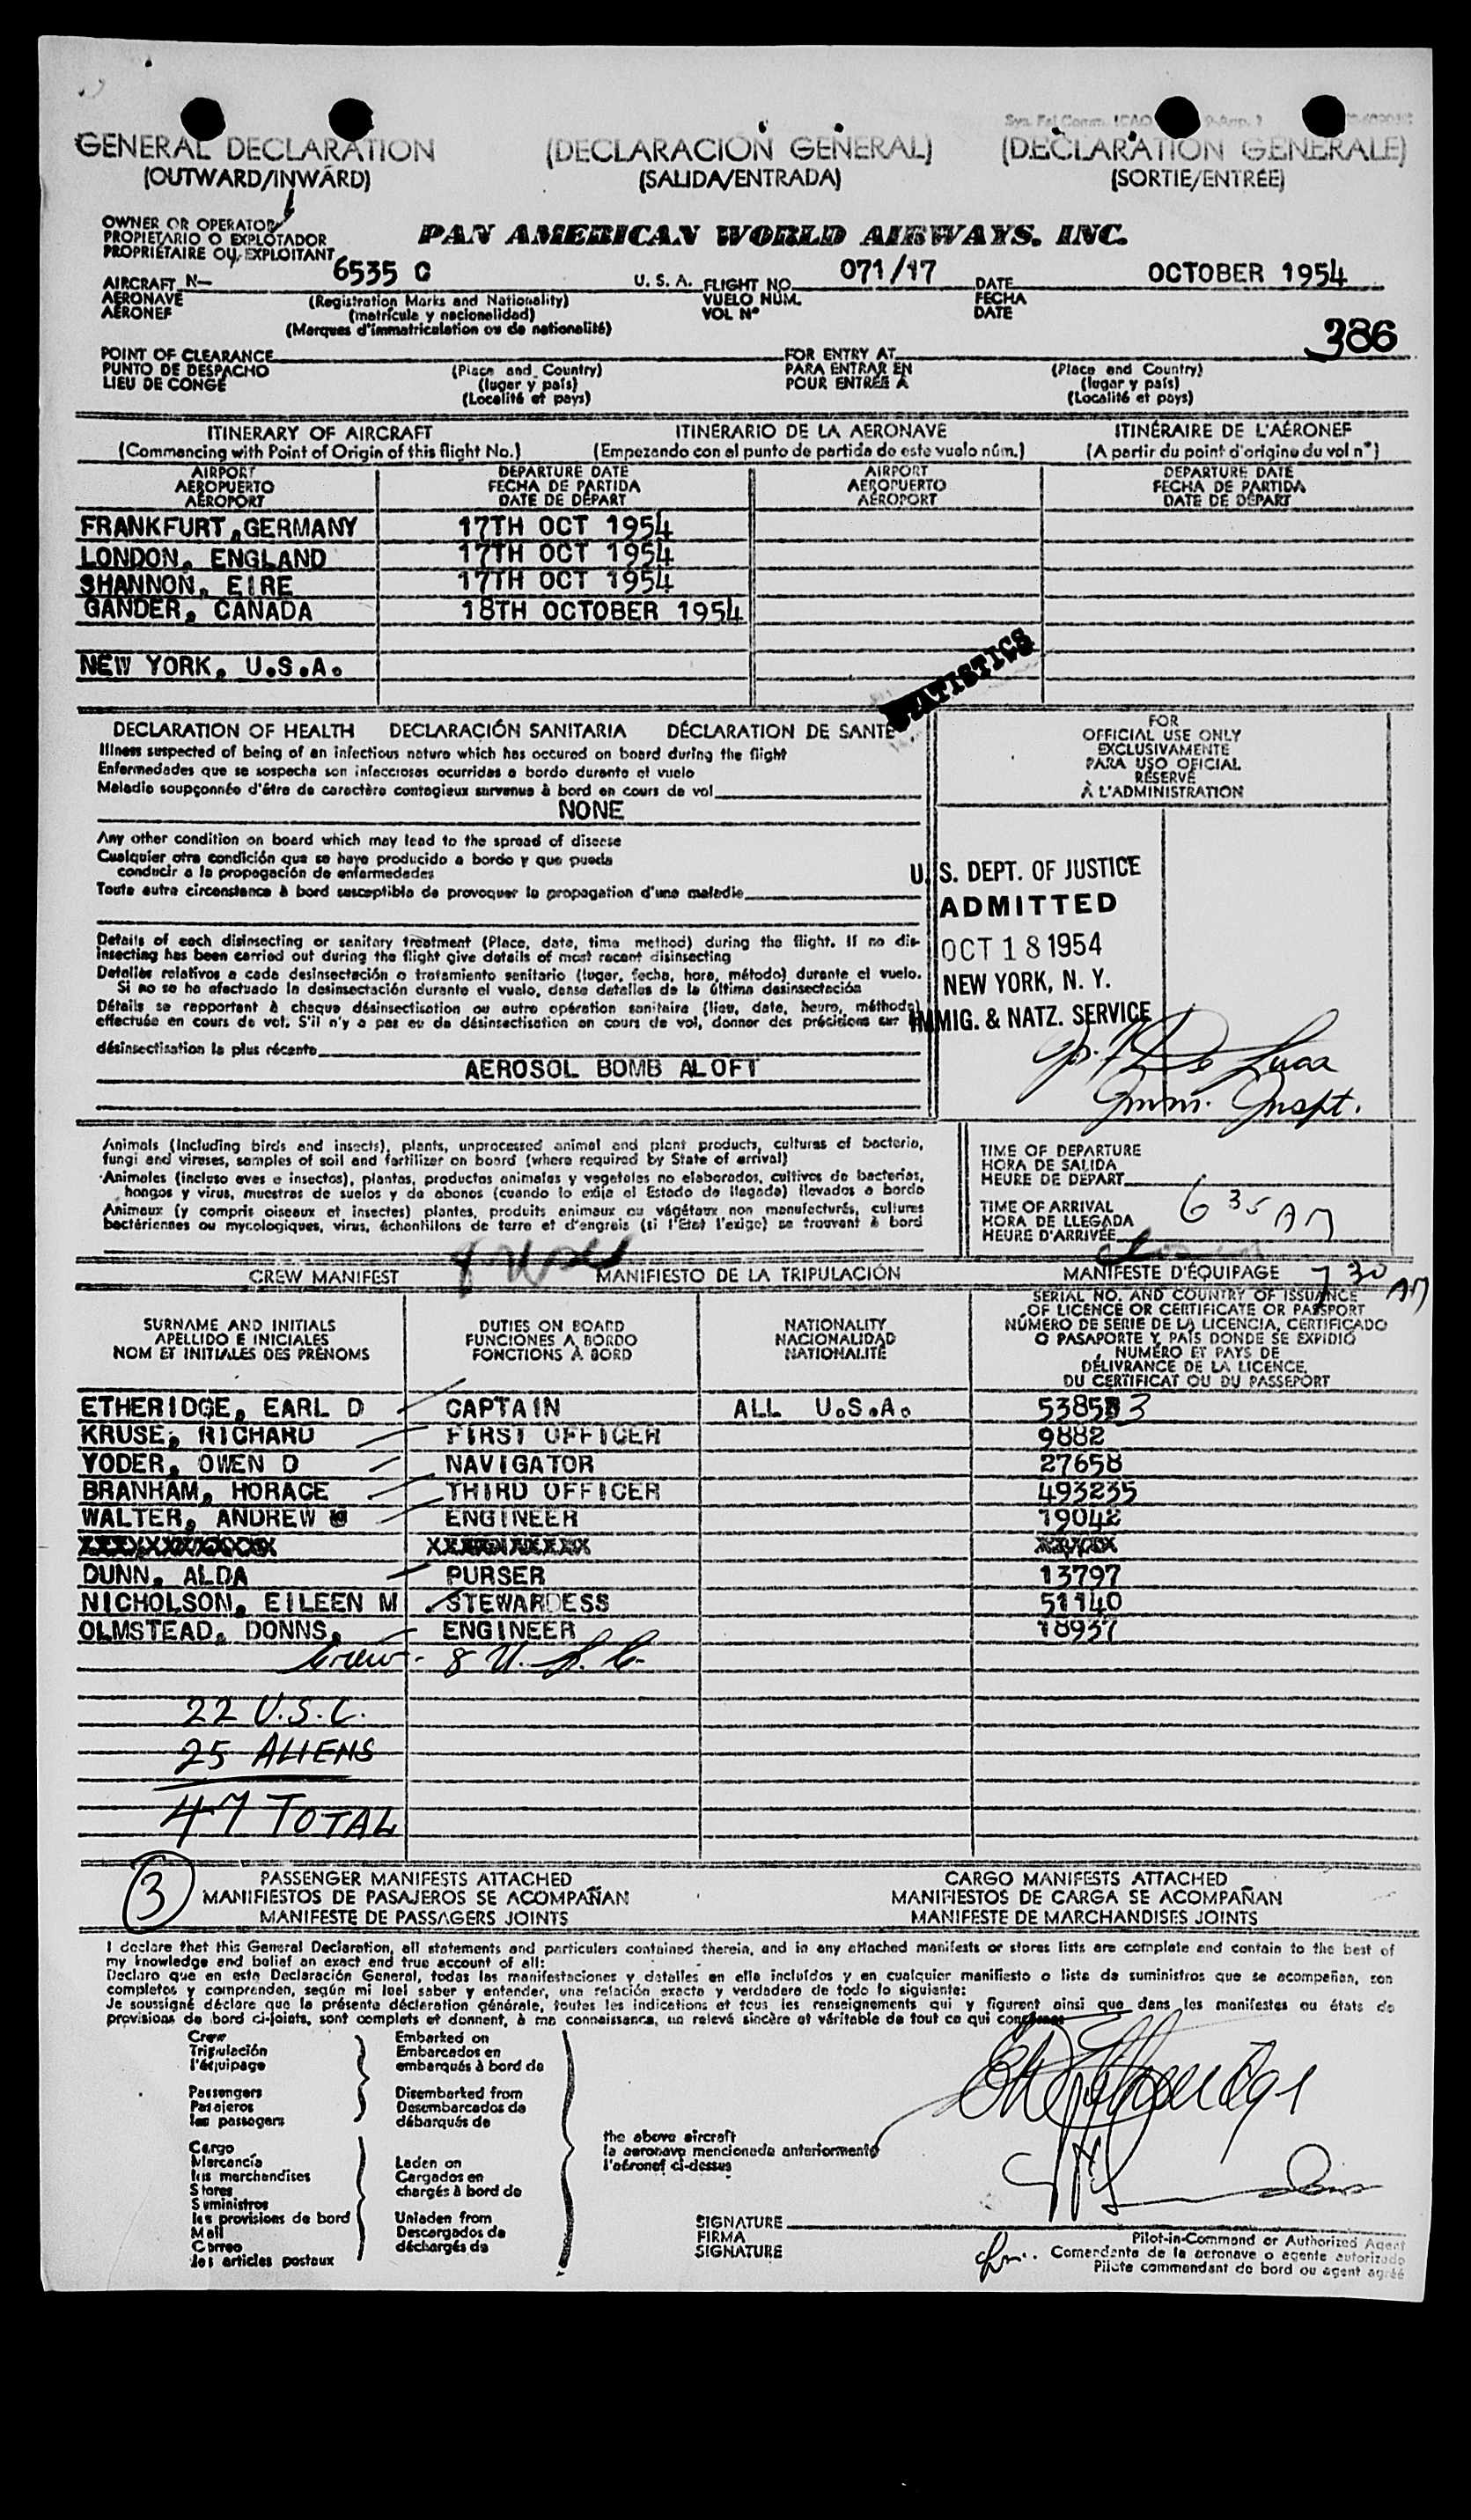 GENERAL DECLARATION (DECLARACIÓN GENERAL) (DECLARATION GENERALE)
(OUTWARD/INWARD) (SALIDA/ENTRADA) (SORTIE/ENTRÉE)
OWNER OR OPERATOR
PROPIETARIO O EXPLOTADOR PAN AMERICAN WORLD AIRWAYS, INC.
PROPRIÉTAIRE OU EXPLOITANT
AIRCRAFT N— 6535 C U. S. A. FLIGHT NO. 071/17 DATE OCTOBER 1954
AERONAVE (Registration Marks and Nationality) VUELO NÚM. FECHA
AÉRONEF (matrícula y nacionalidad) VOL Nº DATE
(Marques d'immatriculation ou de nationalité)
386
POINT OF CLEARANCE FOR ENTRY AT
PUNTO DE DESPACHO (Place and Country) PARA ENTRAR EN (Place and Country)
LIEU DE CONGÉ (lugar y país) POUR ENTRÉE À (lugar y país)
(Localité et pays) (Localité et pays)
ITINERARY OF AIRCRAFT ITINERARIO DE LA AERONAVE ITINÉRAIRE DE L'AÉRONEF
(Commencing with Point of Origin of this flight No.) (Empezando con el punto de partida de este vuelo núm.) (A partir du point d'origine du vol nº)
AIRPORT DEPARTURE DATE AIRPORT DEPARTURE DATE
AEROPUERTO FECHA DE PARTIDA AEROPUERTO FECHA DE PARTIDA
AÉROPORT DATE DE DÉPART AÉROPORT DATE DE DÉPART
FRANKFURT,GERMANY 17TH OCT 1954
LONDON, ENGLAND 17TH OCT 1954
SHANNON, EIRE 17TH OCT 1954
GANDER, CANADA 18TH OCTOBER 1954
NEW YORK, U.S.A.
STATISTICS
DECLARATION OF HEALTH DECLARACIÓN SANITARIA DÉCLARATION DE SANTÉ
Illness suspected of being of an infectious nature which has occured on board during the flight
Enfermedades que se sospecha son infecciosas ocurridas a bordo durante el vuelo
Maladie soupçonnée d'être de caractère contagieux survenue à bord en cours de vol
NONE
Any other condition on board which may lead to the spread of disease
Cualquier otra condición que se haya producido a bordo y que pueda
conducir a la propagación de enfermedades
Toute autre circonstance à bord susceptible de provoquer la propagation d'une maladie
Details of each disinsecting or sanitary treatment (Place, date, time method) during the flight. If no dis-
insecting has been carried out during the flight give details of most recent disinsecting
Detalles relativos a cada desinsectación o tratamiento sanitario (lugar, fecha, hora, método) durante el vuelo.
Si no se ha efectuado la desinsectación durante el vuelo, dense detalles de la última desinsectación
Détails se rapportant à chaque désinsectisation ou autre opération sanitaire (lieu, date, heure, méthode)
effectuée en cours de vol. S'il n'y a pas eu de désinsectisation en cours de vol, donner des précisions sur la
désinsectisation la plus récente
AEROSOL BOMB ALOFT
FOR
OFFICIAL USE ONLY
EXCLUSIVAMENTE
PARA USO OFICIAL
RÉSERVÉ
À L'ADMINISTRATION
U.S. DEPT. OF JUSTICE
ADMITTED
OCT 18 1954
NEW YORK, N. Y.
IMMIG. & NATZ. SERVICE
De Luca
Imm. Inspt.
Animals (including birds and insects), plants, unprocessed animal and plant products, cultures of bacteria,
fungi and viruses, samples of soil and fertilizer on board (where required by State of arrival)
Animales (incluso aves e insectos), plantas, productos animales y vegetales no elaborados, cultivos de bacterias,
hongos y virus, muestras de suelos y de abonos (cuando lo exija el Estado de llegada) llevados a bordo
Animaux (y compris oiseaux et insectes) plantes, produits animaux ou végétaux non manufacturés, cultures
bactériennes ou mycologiques, virus, échantillons de terre et d'engrais (si l'État l'exige) se trouvant à bord
TIME OF DEPARTURE
HORA DE SALIDA
HEURE DE DÉPART
TIME OF ARRIVAL 6 35 AM
HORA DE LLEGADA
HEURE D'ARRIVÉE
7 30 AM
CREW MANIFEST MANIFIESTO DE LA TRIPULACIÓN MANIFESTE D'ÉQUIPAGE
SURNAME AND INITIALS DUTIES ON BOARD NATIONALITY SERIAL NO. AND COUNTRY OF ISSUANCE
APELLIDO E INICIALES FUNCIONES A BORDO NACIONALIDAD OF LICENCE OR CERTIFICATE OR PASSPORT
NOM ET INITIALES DES PRÉNOMS FONCTIONS À BORD NATIONALITÉ NÚMERO DE SERIE DE LA LICENCIA, CERTIFICADO
O PASAPORTE Y PAÍS DONDE SE EXPIDIÓ
NUMÉRO ET PAYS DE
DÉLIVRANCE DE LA LICENCE,
DU CERTIFICAT OU DU PASSEPORT
ETHERIDGE, EARL D CAPTAIN ALL U.S.A. 53853
KRUSE, RICHARD FIRST OFFICER 9882
YODER, OWEN D NAVIGATOR 27658
BRANHAM, HORACE THIRD OFFICER 493235
WALTER, ANDREW ENGINEER 19042
DUNN, ALDA PURSER 13797
NICHOLSON, EILEEN M STEWARDESS 51140
OLMSTEAD, DONNS, ENGINEER 18937
Crew - 8 U.S.C.
22 U.S.C.
25 ALIENS
47 TOTAL
3
PASSENGER MANIFESTS ATTACHED CARGO MANIFESTS ATTACHED
MANIFIESTOS DE PASAJEROS SE ACOMPAÑAN MANIFIESTOS DE CARGA SE ACOMPAÑAN
MANIFESTE DE PASSAGERS JOINTS MANIFESTE DE MARCHANDISES JOINTS
I declare that this General Declaration, all statements and particulars contained therein, and in any attached manifests or stores lists are complete and contain to the best of
my knowledge and belief an exact and true account of all:
Declaro que en esta Declaración General, todas las manifestaciones y detalles en ella incluídos y en cualquier manifiesto o lista de suministros que se acompañan, son
completos y comprenden, según mi leal saber y entender, una relación exacta y verdadera de todo lo siguiente:
Je soussigné déclare que la présente déclaration générale, toutes les indications et tous les renseignements qui y figurent ainsi que dans les manifestes ou états de
provisions de bord ci-joints, sont complets et donnent, à ma connaissance, un relevé sincère et véritable de tout ce qui concerne
Crew Embarked on
Tripulación Embarcados en
l'équipage embarqués à bord de
Passengers Disembarked from
Pasajeros Desembarcados de
les passagers débarqués de
the above aircraft
la aeronave mencionada anteriormente
l'aéronef ci-dessus
Cargo
Mercancía Laden on
les marchandises Cargados en
Stores chargés à bord de
Suministros
les provisions de bord Unladen from
Mail Descargados de
Correo déchargés de
les articles postaux
SIGNATURE
FIRMA
SIGNATURE
Pilot-in-Command or Authorized Agent
Comandante de la aeronave o agente autorizado
Pilote commandant de bord ou agent agréé